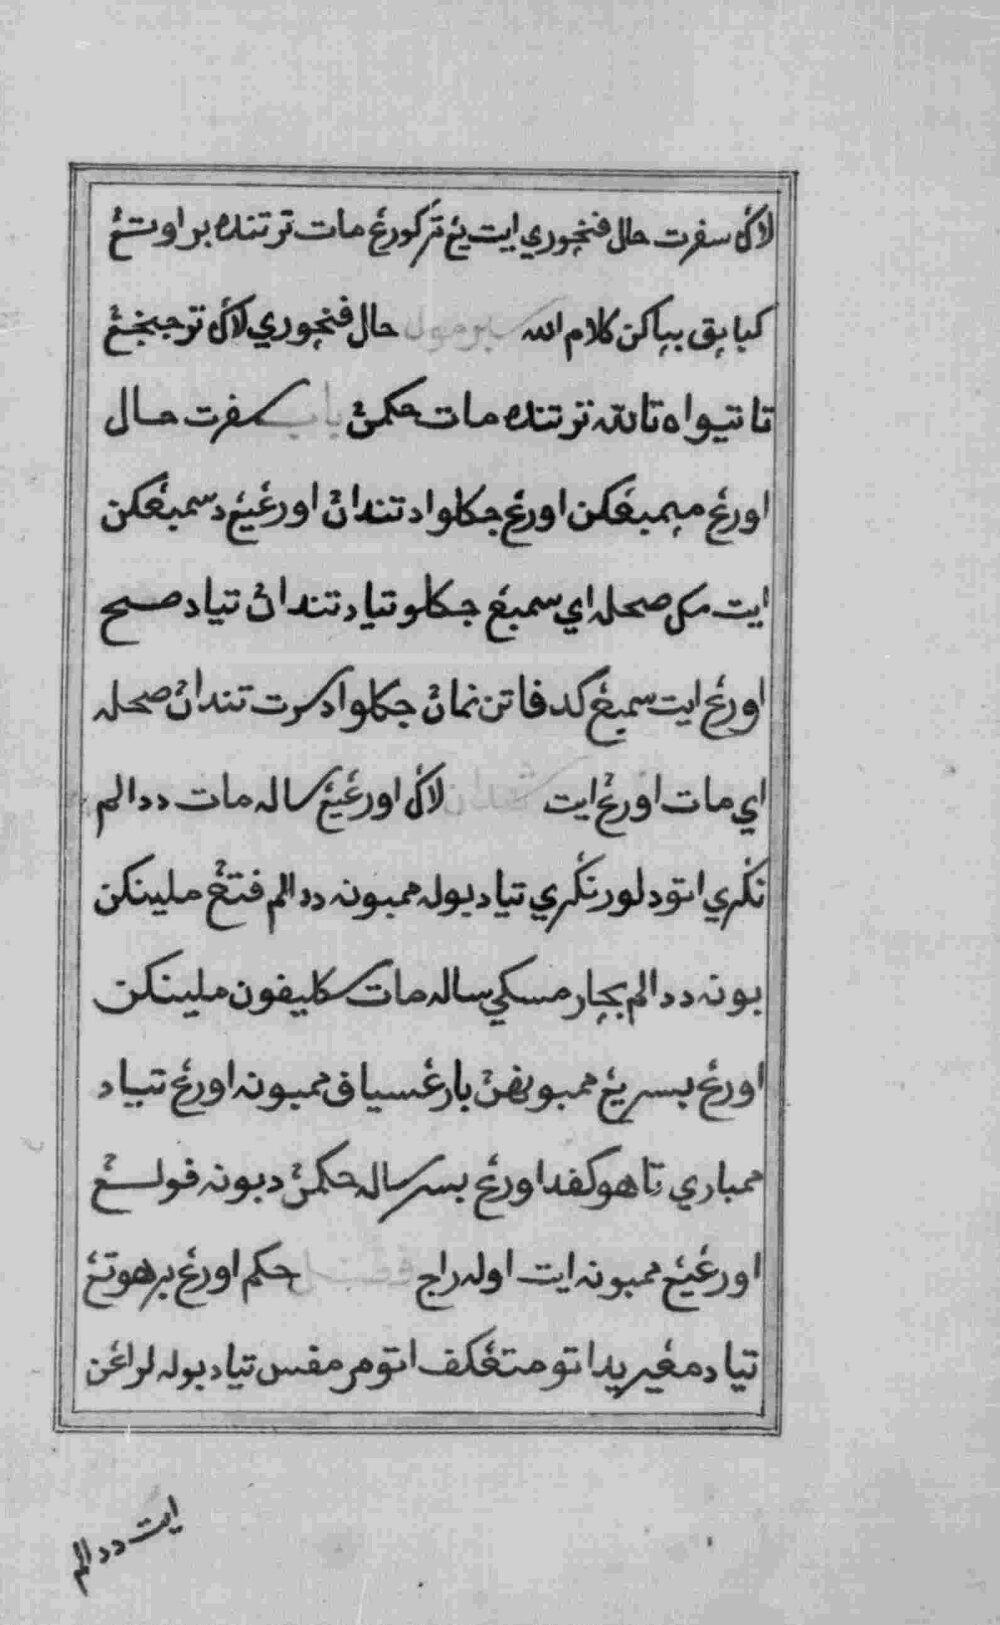 لاݢي سفرت حال فنچوري ايت يڠ ترکورڠ مات ترتنده براوتڠ
کبايق بياکن کلام الله حال فنچوري لاݢي ترجنجڠ
تانتيواه تالله ترتنده مات حکمڽ باب سفرت حال
اورڠ مپمبڠکن اورڠ جکلو اد تنداڽ اورڠيڠ دسمبڠکن
ايت مک صحله اي سمبڠ جکلو تياد تنداڽ تياد صح
اورڠ ايت سمبڠ کدفاتن نماڽ جکلو اد سرت تنداڽ صحله
اي مات اورڠ ايت لاݢي اورڠيڠ ساله مات ددالم
نݢري اتو دلور نݢري تياد بوله ممبونه ددالم فتڠ ملينکن
بونه ددالم بچار مسکي ساله مات سکليفون ملينکن
اورڠ بسر يڠ ممبونهن بارڠسياف ممبونه اورڠ تياد
ممباري تاهو کفد اورڠ بسر ساله حکمڽ دبونه فولڠ
اورڠيڠ ممبونه ايت اوله راج فصل حکم اورڠ برهوتڠ
تياد مڠيريد اتو متڠکف اتو مرمفس تياد بوله لراڠن
ايت ددالم